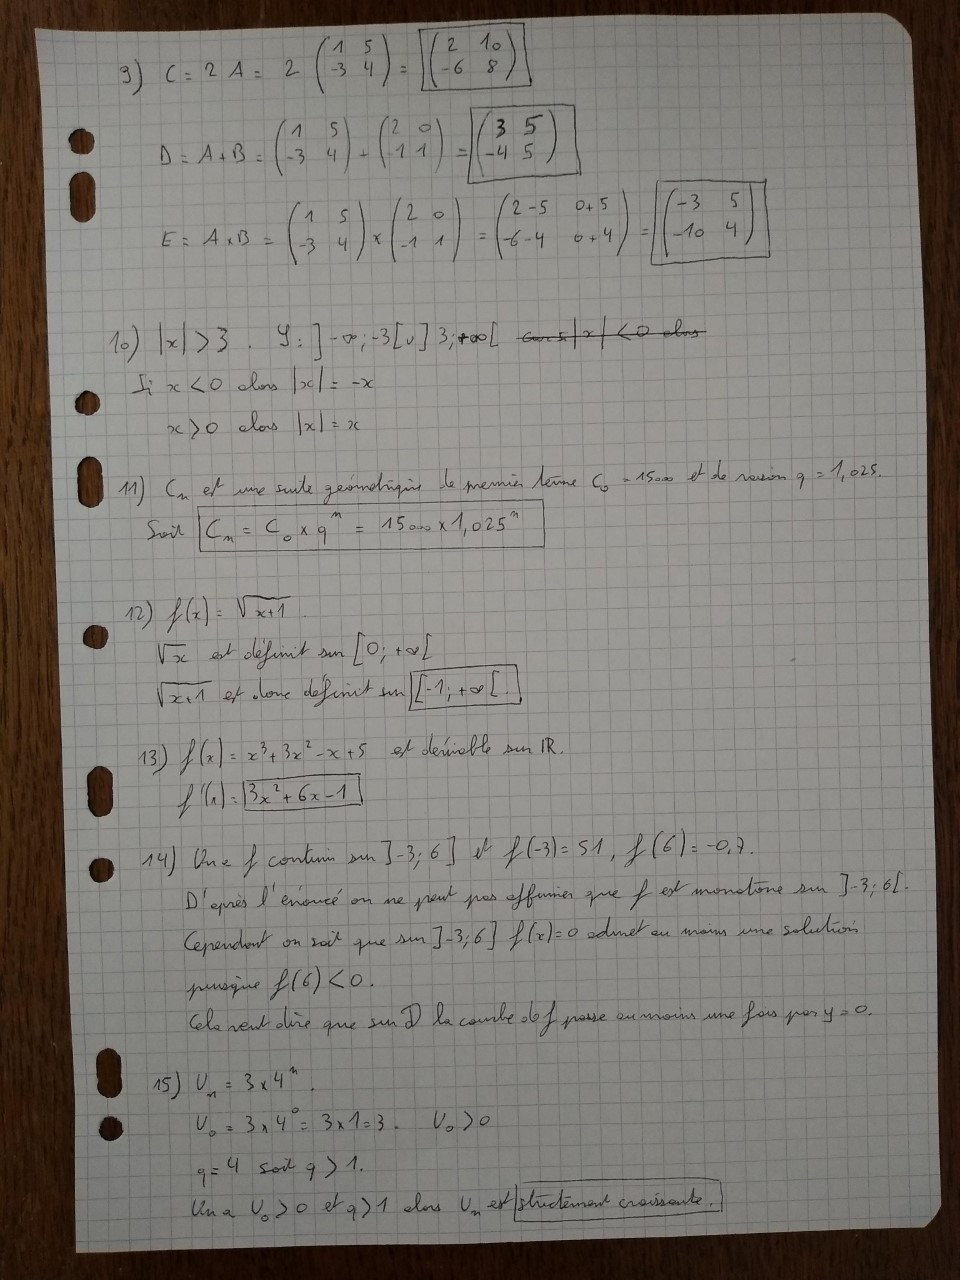 9) C = 2 A = 2 (1 5 ; -3 4) = (2 10 ; -6 8)
D = A + B = (1 5 ; -3 4) + (2 0 ; -1 1) = (3 5 ; -4 5)
E = A × B = (1 5 ; -3 4) × (2 0 ; -1 1) = (2-5 0+5 ; -6-4 0+4) = (-3 5 ; -10 4)
10) |x| > 3 . S : ]-∞; -3[ U ]3; +∞[ |x| < 0 alors
Si x < 0 alors |x| = -x
x > 0 alors |x| = x
11) Cn est une suite géométrique de premier terme C0 = 15000 et de raison q = 1,025.
Soit Cn = C0 × q^n = 15000 × 1,025^n
12) f(x) = √x+1 .
√x est définit sur [0; +∞[
√x+1 est donc définit sur [-1; +∞[.
13) f(x) = x³ + 3x² - x + 5 est dérivable sur IR.
f'(x) = 3x² + 6x - 1
14) On a f continu sur ]-3; 6] et f(-3) = 51, f(6) = -0,7.
D'après l'énoncé on ne peut pas affirmer que f est monotone sur ]-3; 6[.
Cependant on sait que sur ]-3; 6] f(x) = 0 admet au moins une solution
puisque f(6) < 0.
Cela veut dire que sur D la courbe de f passe au moins une fois par y = 0.
15) Un = 3 × 4^n .
U0 = 3 × 4^0 = 3 × 1 = 3 . U0 > 0
q = 4 soit q > 1.
On a U0 > 0 et q > 1 alors Un est strictement croissante.